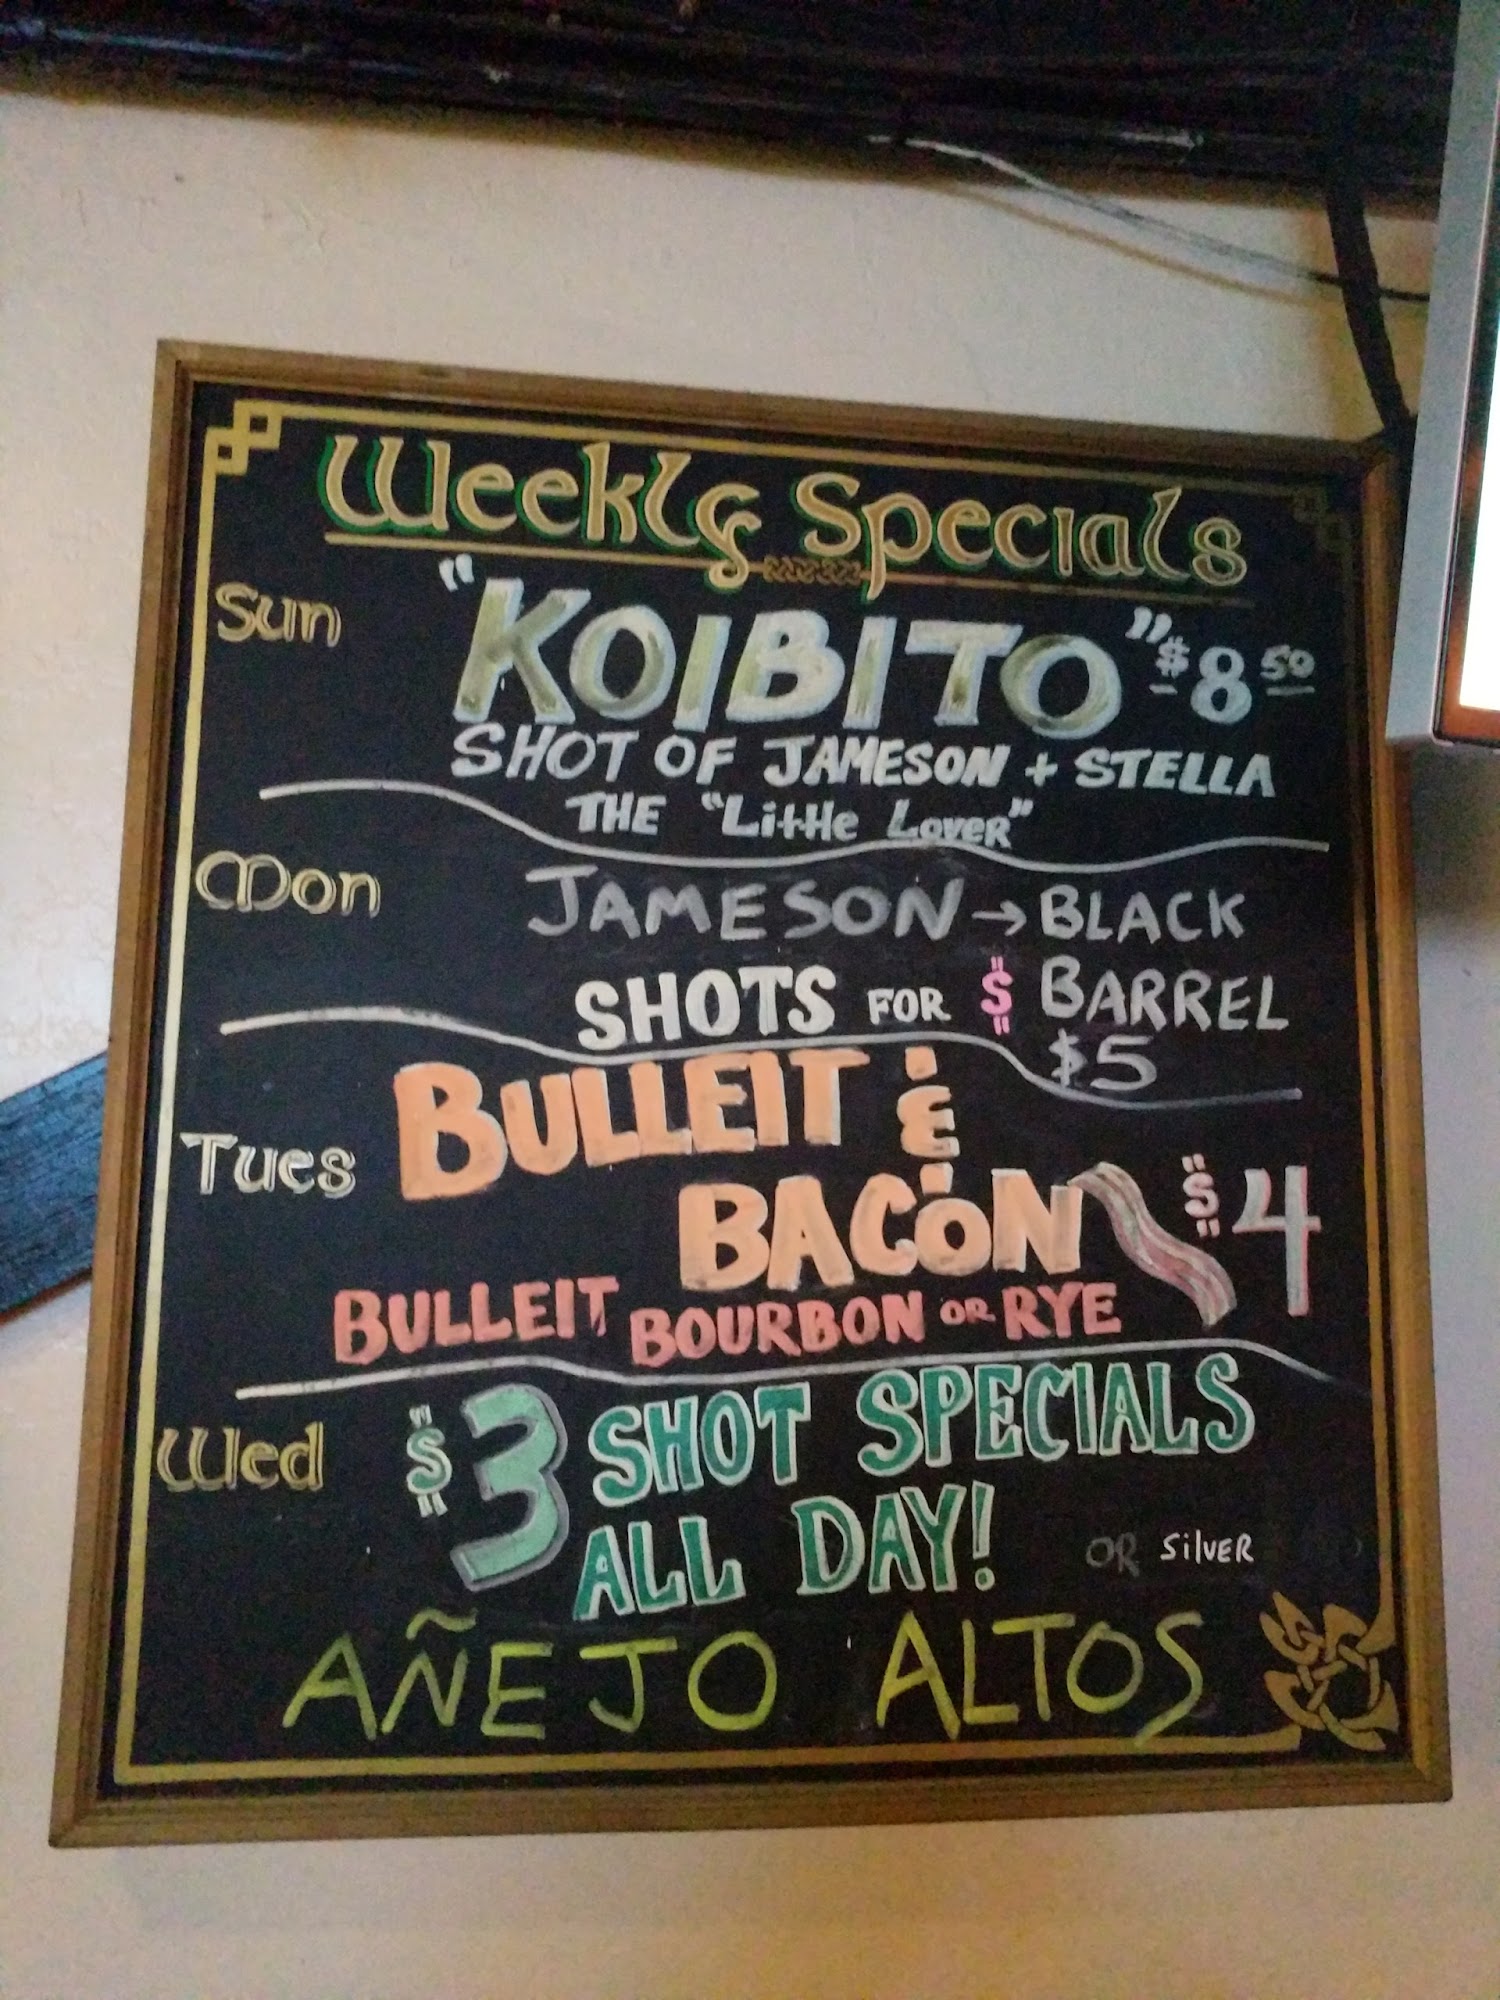 Weekly Specials
Sun
"KOIBITO" $8 50
SHOT OF JAMESON + STELLA
THE "Little Lover"
Mon
JAMESON → BLACK
SHOTS FOR $ BARREL
$5
Tues
BULLEIT &
BACON $4
BULLEIT BOURBON OR RYE
Wed
$3 SHOT SPECIALS
ALL DAY!
OR SilVER
AÑEJO ALTOS